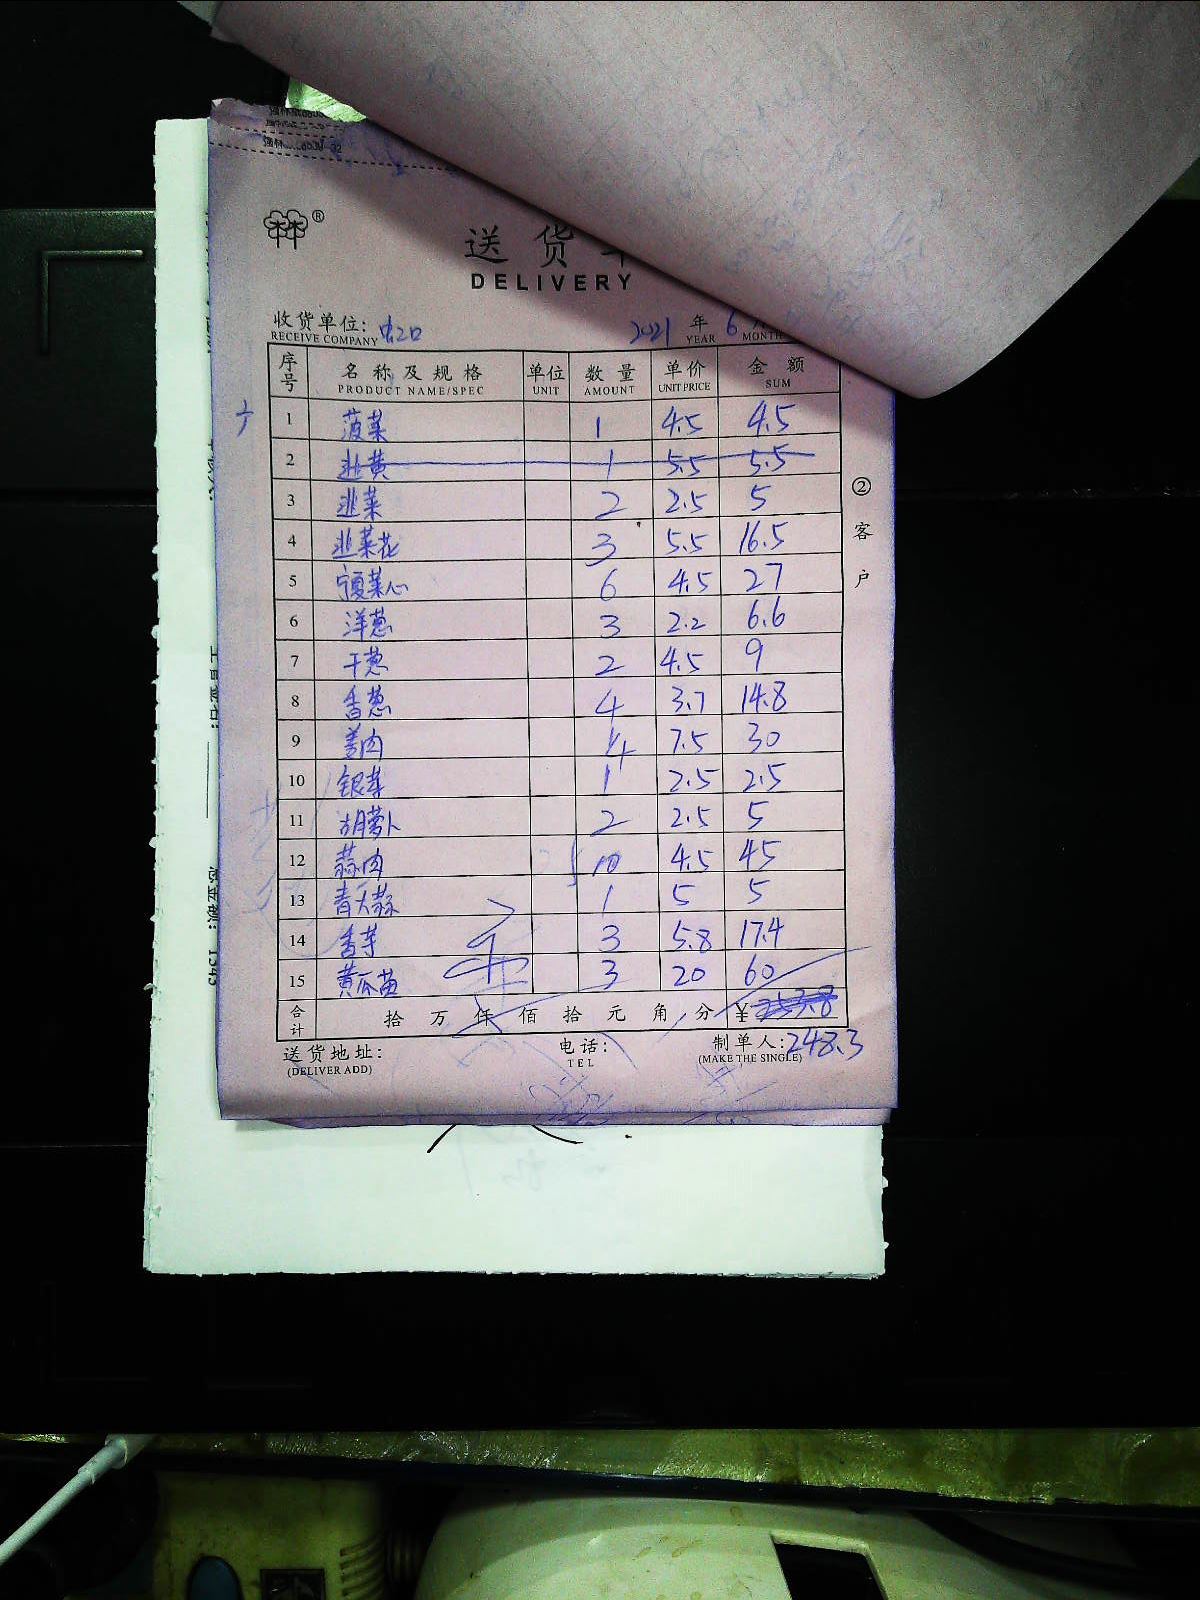 送货单
DELIVERY
收货单位:
RECEIVE COMPANY
2021 年 6 月
YEAR MONTH
序号 名称及规格 单位 数量 单价 金额
PRODUCT NAME/SPEC UNIT AMOUNT UNIT PRICE SUM
1 菠菜 1 4.5 4.5
2 韭黄 1 5.5 5.5
3 韭菜 2 2.5 5
4 韭菜花 3 5.5 16.5
5 宁夏菜心 6 4.5 27
6 洋葱 3 2.2 6.6
7 干葱 2 4.5 9
8 香葱 4 3.7 14.8
9 姜肉 4 7.5 30
10 银芽 1 2.5 2.5
11 胡萝卜 2 2.5 5
12 蒜肉 10 4.5 45
13 青大蒜 1 5 5
14 香芋 3 5.8 17.4
15 黄瓜苗 3 20 60
合计 拾 万 仟 佰 拾 元 角 分 ¥ 253.8
248.3
送货地址: 电话: 制单人:
(DELIVER ADD) TEL (MAKE THE SINGLE)
② 客户